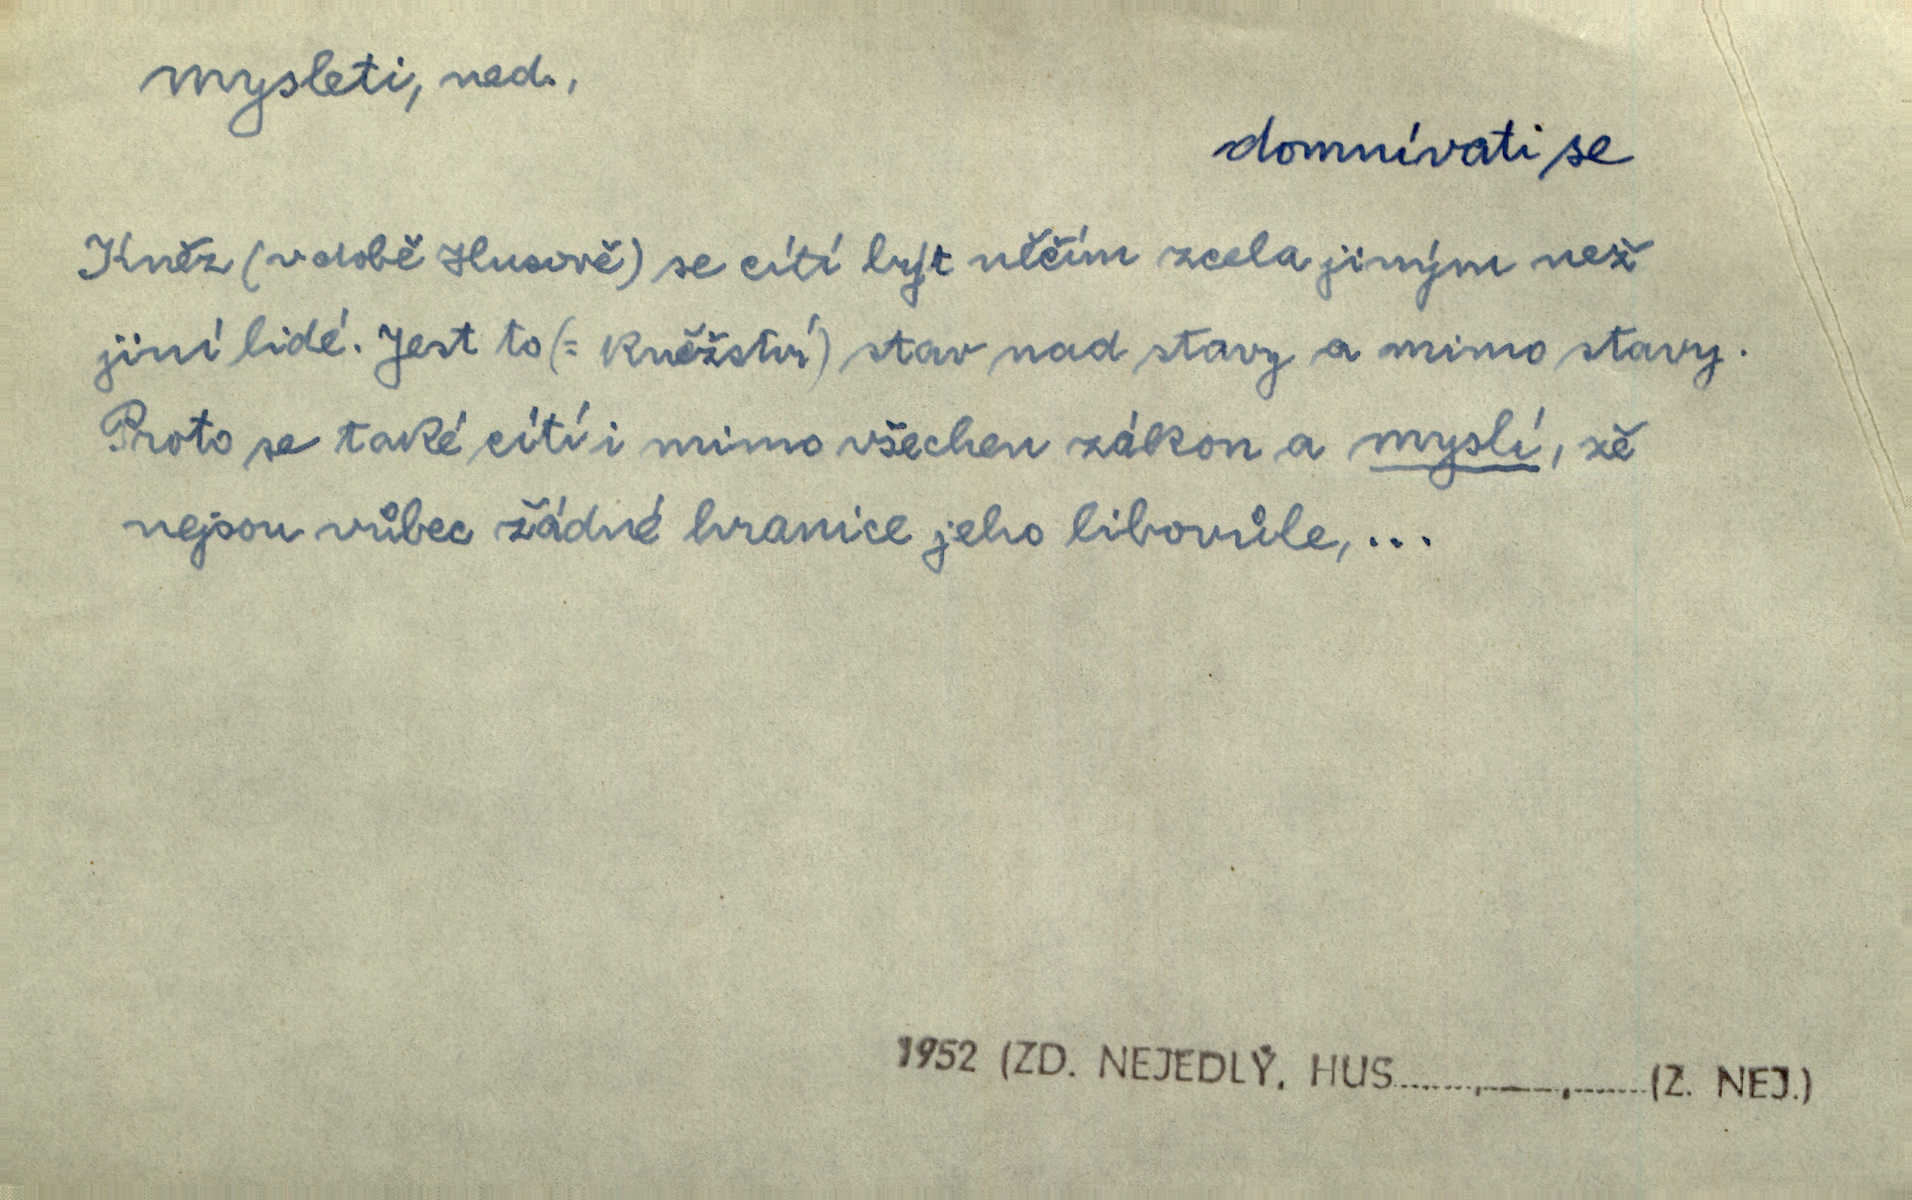 mysleti, ned.,
domnívati se
Kněz (v době Husově) se cítí být něčím zcela jiným než
jiní lidé. Jest to (= kněžství) stav nad stavy a mimo stavy.
Proto se také cítí i mimo všechen zákon a myslí, že
nejsou vůbec žádné hranice jeho libovůle, ...
1952 (ZD. NEJEDLÝ, HUS.......,........,.......(Z. NEJ.)